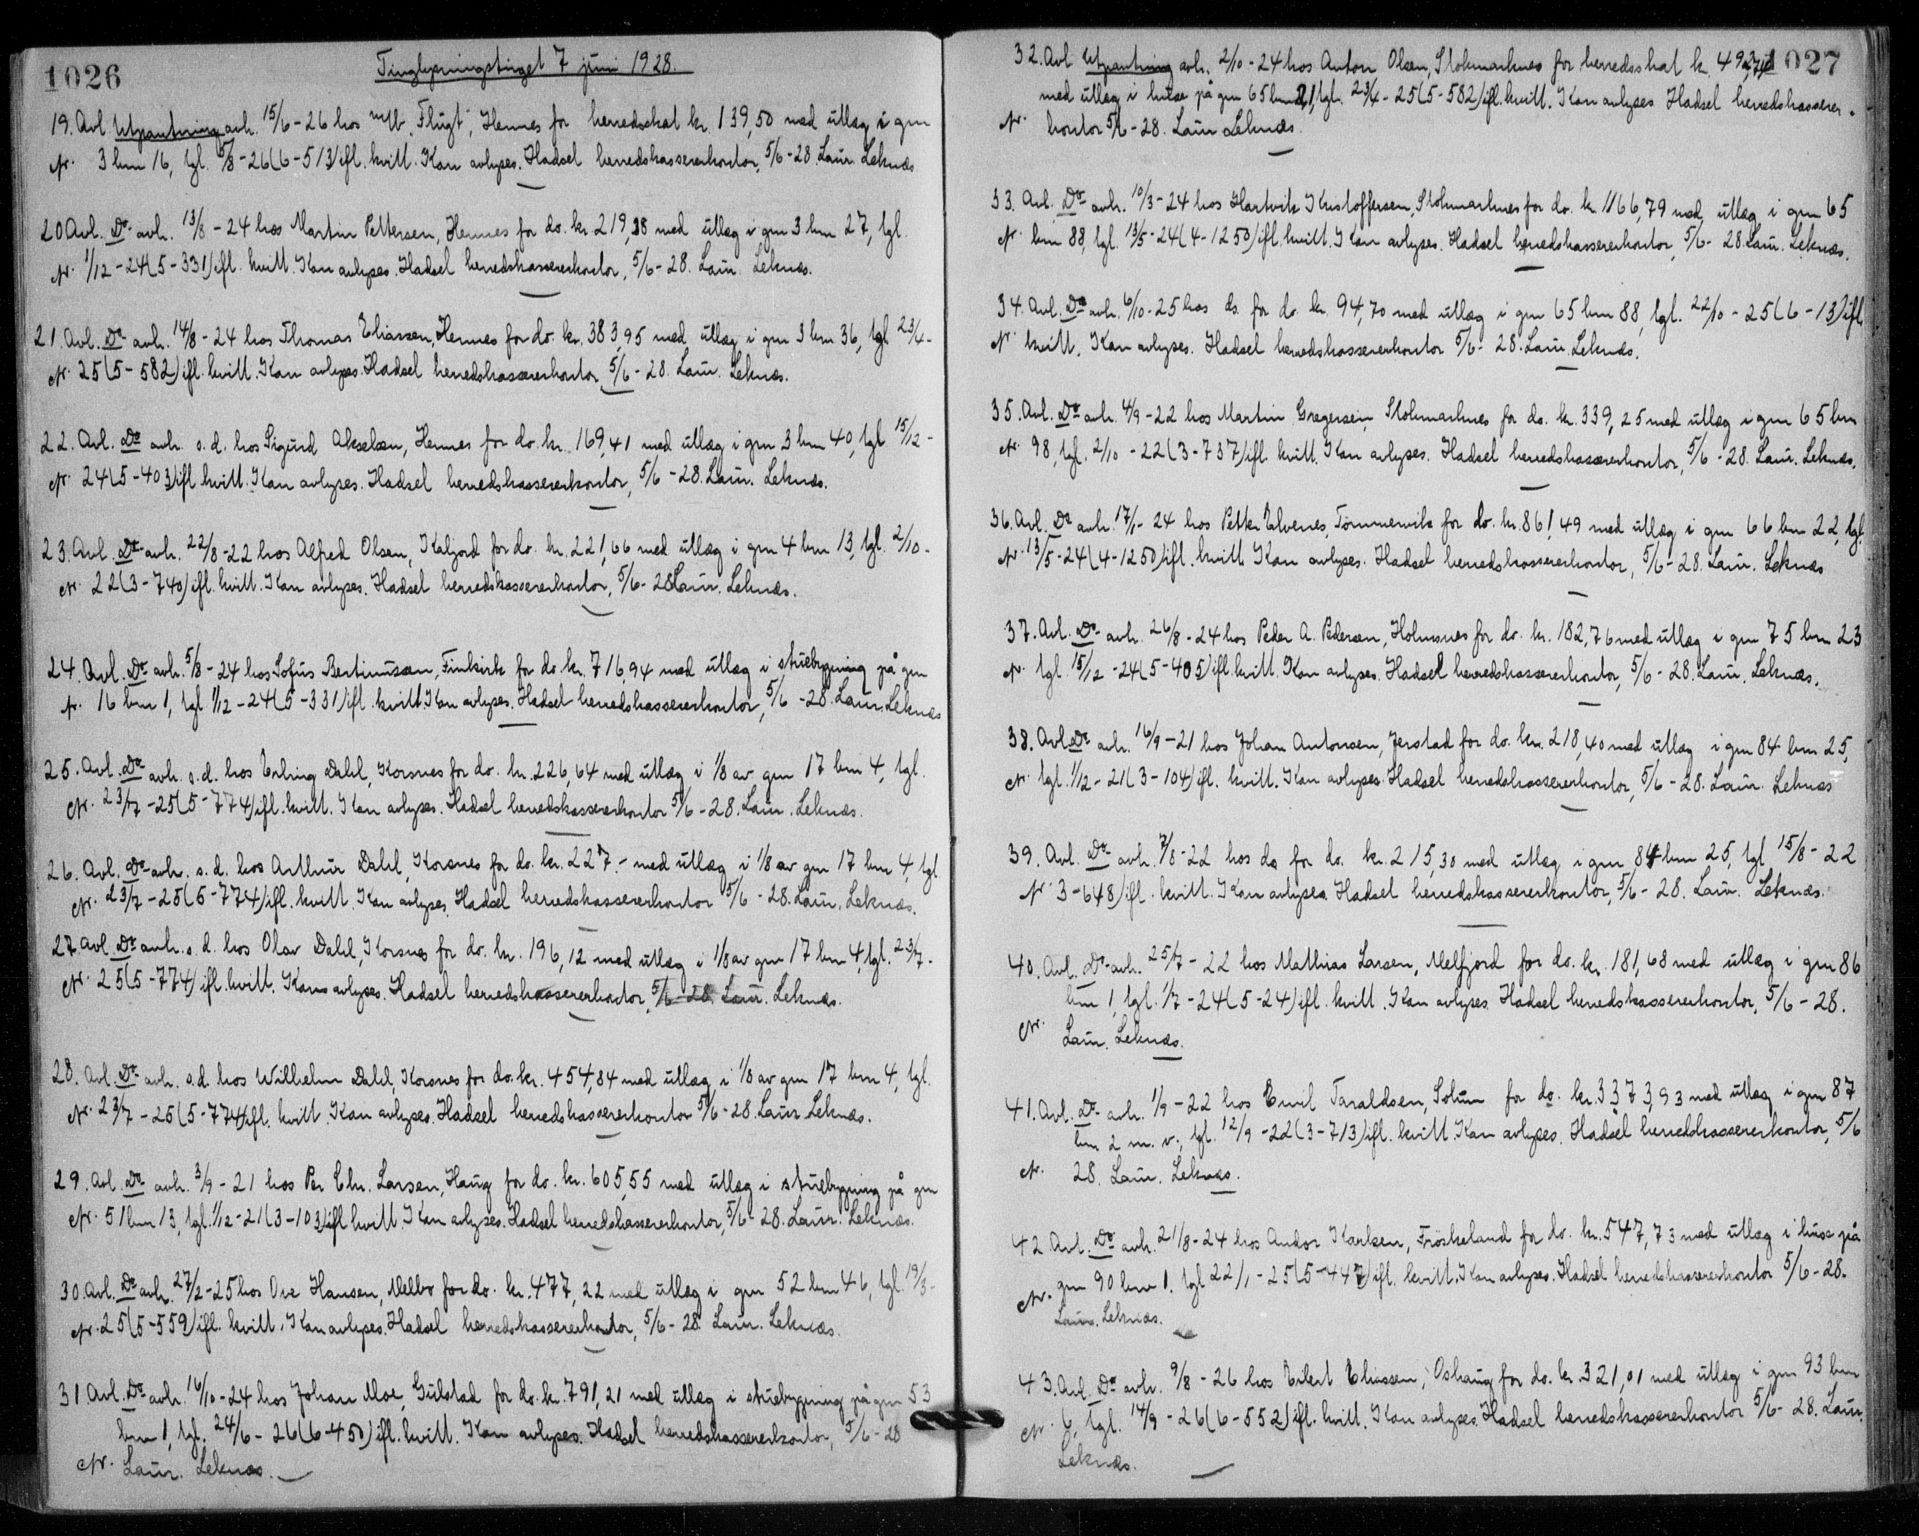 1026
Tinglysningstinget 7 juni 1928.
19. Avl Utpantning avh. 15/6-26 hos m/b "Flugt", Hennes for herredsskat kr. 139,50 med utlæg i gnr
Nr. 3 bnr 16, tgl. 5/8-26(6-513) ifl. kvitt. Kan avlyses. Hadsel herredskassererkontor, 5/6-28. Laur. Leknæs
20 Avl. Do avh. 13/8-24 hos Martin Pettersen, Hennes for do. kr 219,38 med utlæg i gnr 3 bnr 27, tgl.
Nr. 1/12-24(5-331) ifl. kvitt. Kan avlyses. Hadsel herredskassererkontor, 5/6-28. Laur. Leknæs.
21. Avl. Do avh. 14/8-24 hos Thomas Eliassen, Hennes for do. kr. 383,95 med utlæg i gnr 3 bnr 36, tgl 23/4-
Nr. 25(5-582) ifl. kvitt. Kan avlyses. Hadsel herredskassererkontor, 5/6-28. Laur. Leknæs.
22. Avl. Do avh. s.d. hos Sigurd Akselsen, Hennes for do. kr. 169,41 med utlæg i gnr 3 bnr 40, tgl 15/12-
Nr. 24(5-403) ifl kvitt. Kan avlyses. Hadsel herredskassererkontor, 5/6-28. Laur. Leknæs.
23. Avl. Do avh. 22/8-22 hos Alfred Olsen, Kaljord for do. kr. 221,66 med utlæg i gnr 4 bnr 13, tgl. 2/10-
Nr. 22(3-740) ifl. kvitt. Kan avlyses. Hadsel herredskassererkontor, 5/6-28 Laur. Leknæs.
24. Avl. Do avh. 5/8-24 hos Sofus Bertinusen, Finkirk for do. kr. 716,94 med utlæg i stuebygning på gnr
Nr. 16 bnr 1, tgl 1/12-24(5-331) ifl. kvitt. Kan avlyses. Hadsel herredskassererkontor, 5/6-28. Laur. Leknæs
25. Avl. Do avh. s.d. hos Erling Dahl, Korsnes for do. kr. 226,64 med utlæg i 1/8 av gnr 17 bnr 4, tgl.
Nr. 23/7-25(5-774) ifl. kvitt. Kan avlyses. Hadsel herredskassererkontor 5/6-28. Laur. Leknæs.
26. Avl. Do avh. s.d. hos Arthur Dahl, Korsnes for do. kr. 227.- med utlæg i 1/8 av gnr 17 bnr 4, tgl
Nr. 23/7-25(5-774) ifl. kvitt. Kan avlyses. Hadsel herredskassererkontor 5/6-28. Laur. Leknæs.
27. Avl Do avh. s.d. hos Olav Dahl, Korsnes for do. kr. 196,12 med utlæg i 1/8 av gnr 17 bnr 4, tgl. 23/7-
Nr. 25(5-774) ifl. kvitt. Kan avlyses. Hadsel herredskassererkontor, 5/6-28. Laur. Leknæs.
28. Avl. Do avh. s.d. hos Wilhelm Dahl, Korsnes for do. kr. 454,84 med utlæg i 1/8 av gnr 17 bnr 4, tgl.
Nr. 23/7-25(5-774) ifl. kvitt. Kan avlyses. Hadsel herredskassererkontor 5/6-28. Laur. Leknæs.
29. Avl. Do avh. 3/9-21 hos Per Chr. Larsen, Haug for do. kr. 605,55 med utlæg i stuebygning på gnr
Nr. 51 bnr 13, tgl. 1/12-21(3-103) ifl kvitt. Kan avlyses. Hadsel herredskassererkontor, 5/6-28. Laur. Leknæs.
30. Avl. Do avh. 27/2-25 hos Ove Hansen, Melbo for do. kr. 477,22 med utlæg i gnr 52 bnr 46, tgl 19/3-
Nr. 25(5-559) ifl. kvitt. Kan avlyses. Hadsel herredskassererkontor, 5/6-28. Laur. Leknæs.
31 Avl. Do avh. 16/10-24 hos Johan Moe, Gulstad for do. kr. 791,21 med utlæg i stuebygning på gnr 53
bnr 1, tgl. 24/6-26(6-450) ifl. kvitt. Kan avlyses. Hadsel herredskassererkontor, 5/6-28
Nr. Laur. Leknæs.
1027
32. Avl Utpantning avh. 2/10-24 hos Anton Olsen, Stokmarknes for herredsskat kr. 492,71
med utlæg i huse på gnr 65 bnr 21, tgl. 23/4-25(5-582) ifl. kvitt. Kan avlyses Hadsel herredskasserer-
Nr. kontor 5/6-28. Laur Leknæs.
33. Avl. Do avh. 10/3-24 hos Hartvik Kristoffersen, Stokmarknes for do. kr. 1166,79 med utlæg i gnr 65
Nr. bnr 88, tgl. 13/5-24(4-1250) ifl. kvitt. Kan avlyses. Hadsel herredskassererkontor, 5/6-28. Laur. Leknæs.
34. Avl. Do avh. 6/10-25 hos ds. for do. kr. 94,70 med utlæg i gnr 65 bnr 88, tgl. 22/10-25(6-13) ifl
Nr. kvitt. Kan avlyses. Hadsel herredskassererkontor 5/6-28. Laur. Leknæs.
35. Avl. Do avh. 4/9-22 hos Martin Gregersen Stokmarknes for do. kr. 339,25 med utlæg i gnr 65 bnr
Nr. 98, tgl. 2/10-22(3-737) ifl. kvitt. Kan avlyses. Hadsel herredskassererkontor, 5/6-28. Laur. Leknæs.
36. Avl. Do avh. 17/1-24 hos Petter Elvenes, Tømmervik for do. kr. 861,49 med utlæg i gnr 66 bnr 22, tgl.
Nr. 13/5-24(4-1250) ifl. kvitt Kan avlyses. Hadsel herredskassererkontor, 5/6-28. Laur. Leknæs
37. Avl. Do avh. 26/8-24 hos Peder A. Pedersen, Holmsnes for do. kr. 182,76 med utlæg i gnr 75 bnr 23
Nr. tgl. 15/12-24(5-405) ifl. kvitt. Kan avlyses. Hadsel herredskassererkontor, 5/6-28. Laur. Leknæs.
38. Avl. Do avh. 16/9-21 hos Johan Antonsen, Jerstad for do. kr. 218,40 med utlæg i gnr 84 bnr 25,
Nr. tgl. 1/12-21(3-104) ifl. kvitt. Kan avlyses. Hadsel herredskassererkontor, 5/6-28. Laur. Leknæs
39. Avl. Do avh. 7/8-22 hos ds for do. kr. 215,30 med utlæg i gnr 84 bnr 25, tgl 15/8-22
Nr. 3-648) ifl. kvitt. Kan avlyses. Hadsel herredskassererkontor, 5/6-28. Laur. Leknæs.
40. Avl. Do avh. 25/7-22 hos Mathias Larsen, Melfjord for do. kr. 181,68 med utlæg i gnr 86
bnr 1, tgl. 1/7-24(5-24) ifl. kvitt. Kan avlyses. Hadsel herredskassererkontor, 5/6-28.
Nr. Laur. Leknæs.
41. Avl. Do avh. 1/9-22 hos Emil Taraldsen, Solum for do. kr. 3373,93 med utlæg i gnr 87
bnr 2 m. v., tgl. 12/9-22(3-713) ifl. kvitt. Kan avlyses. Hadsel herredskassererkontor, 5/6
Nr. 28. Laur. Leknæs.
42 Avl. Do avh. 21/8-24 hos Andor Karlsen, Frøskeland for do. kr. 547,73 med utlæg i huse på
Nr. gnr 90 bnr 1. tgl 22/1-25(5-447) ifl. kvitt. Kan avlyses. Hadsel herredskassererkontor 5/6-28.
Laur. Leknæs.
43. Avl. Do avh. 9/8-26 hos Eilert Elissen, Oshaug for do. kr. 321,01 med utlæg i gnr 93 bnr
Nr. 6, tgl. 14/9-26(6-552) ifl. kvitt. Kan avlyses. Hadsel herredskassererkontor 5/6-28. Laur.
Leknæs.